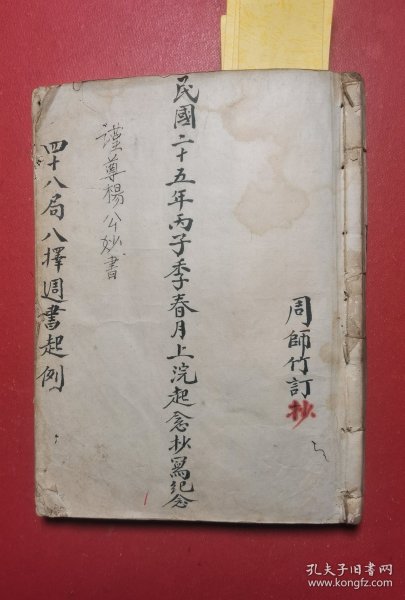 周師竹訂抄
民國二十五年丙子季春月上浣起念抄寫紀念
謹尊楊公妙書
四十八局八擇週書起例
孔夫子旧书网
www.kongfz.com